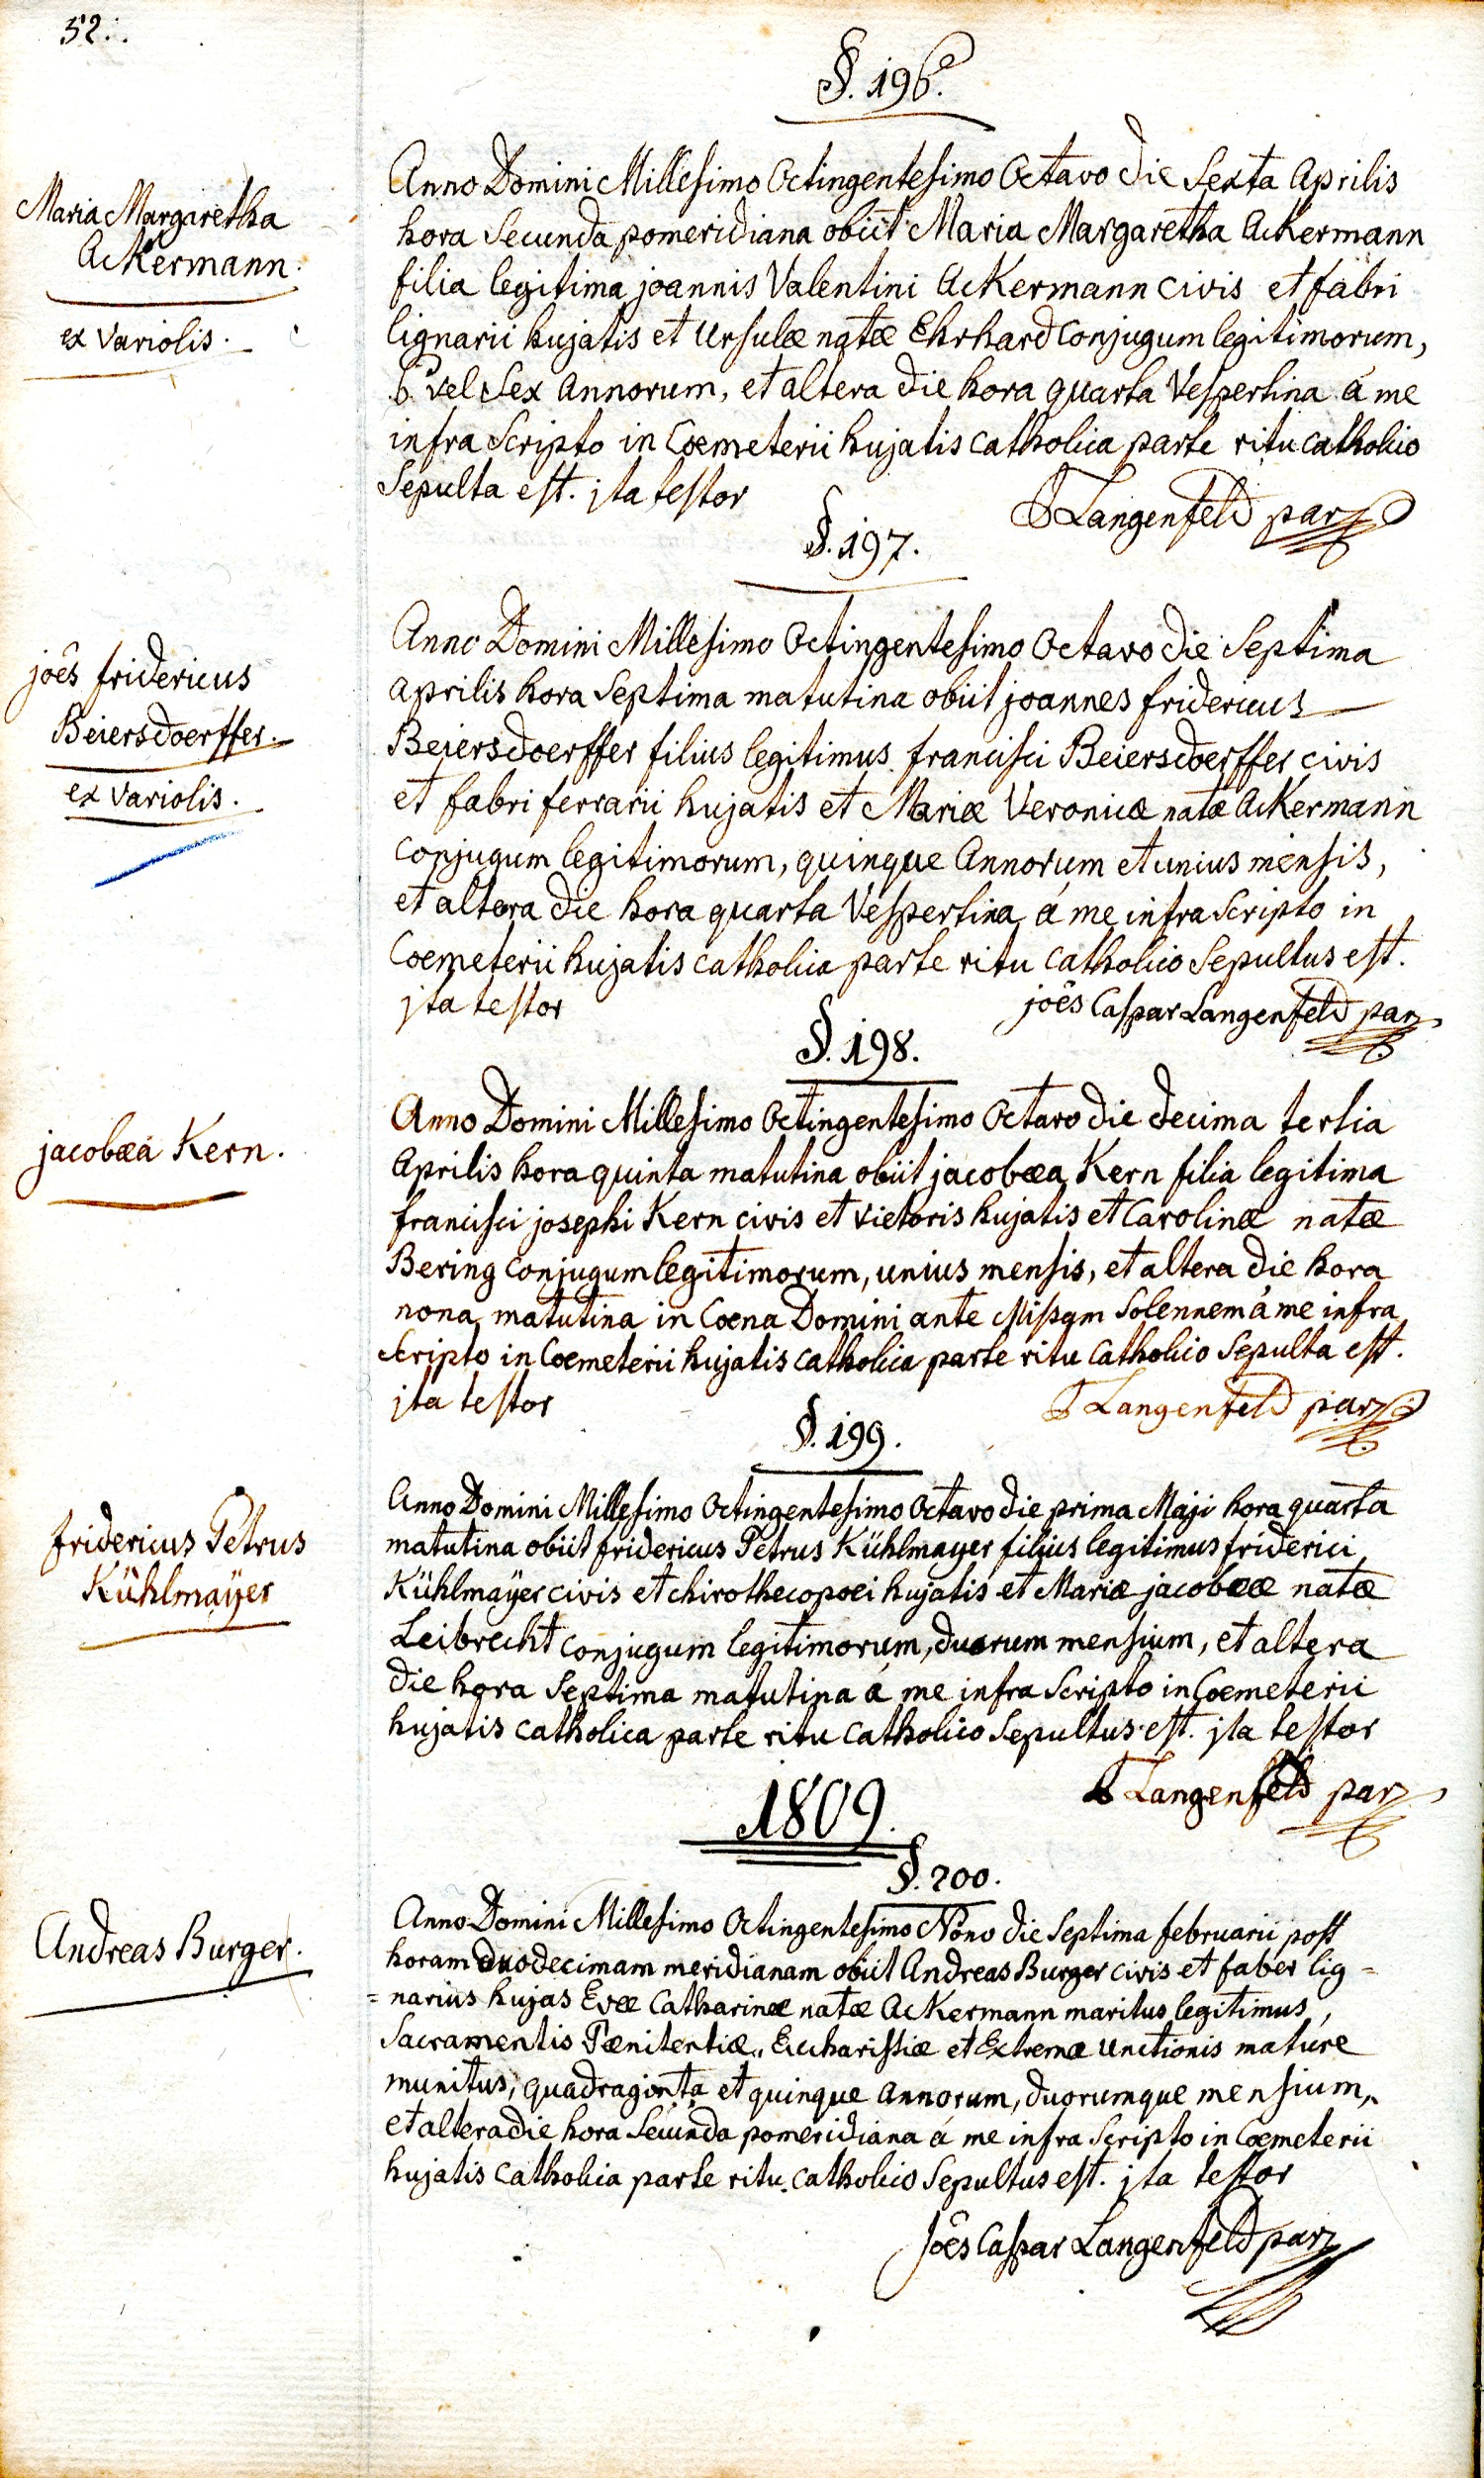 52.
§. 196.
Maria Margaretha
Ackermann.
ex variolis.
Anno Domini Millesimo Octingentesimo Octavo die Sexta Aprilis
hora Secunda pomeridiana obiit Maria Margaretha Ackermann
filia legitima joannis Valentini Ackermann civis et fabri
lignarii hujatis et Ursulæ natæ Ehrhard conjugum legitimorum,
6. vel Sex Annorum, et altera die hora quarta Vespertina á me
infra Scripto in Coemeterii hujatis catholica parte ritu catholico
Sepulta est. jta testor
Langenfeld par
§. 197.
joês fridericus
Beiersdoerffer.
ex variolis.
Anno Domini Millesimo Octingentesimo Octavo die Septima
aprilis hora Septima matutina obiit joannes fridericus
Beiersdoerffer filius legitimus francisci Beiersdoerffer civis
et fabri ferrarii hujatis et Mariæ Veronicæ natæ Ackermann
conjugum legitimorum, quinque Annorum et unius mensis,
et altera die hora quarta Vespertina á me infra Scripto in
Coemeterii hujatis catholica parte ritu catholico Sepultus est.
jta testor
joês Caspar Langenfeld par
§. 198.
jacobæa Kern.
Anno Domini Millesimo Octingentesimo Octavo die decima tertia
Aprilis hora quinta matutina obiit jacobæa Kern filia legitima
francisci josephi Kern civis et vietoris hujatis et Carolinæ natæ
Bering conjugum legitimorum, unius mensis, et altera die hora
nona matutina in Coena Domini ante Missam Solennem á me infra
Scripto in Coemeterii hujatis catholica parte ritu Catholico Sepulta est.
jta testor
Langenfeld par
§. 199.
fridericus Petrus
Kühlmaÿer
Anno Domini Millesimo Octingentesimo Octavo die prima Maji hora quarta
matutina obiit fridericus Petrus Kühlmayer filius legitimus friderici
Kühlmaÿer civis et chirothecopoei hujatis et Mariæ jacobææ natæ
Leibrecht conjugum legitimorum, duorum mensium, et altera
die hora Septima matutina á me infra Scripto in Coemeterii
hujatis catholica parte ritu catholico Sepultus est. jta testor
Langenfeld par
1809.
§. 200.
Andreas Burger.
Anno Domini Millesimo Octingentesimo Nono die Septima februarii post
horam duodecimam meridianam obiit Andreas Burger civis et faber lig=
=narius hujas Evæ Catharinæ natæ Ackermann maritus legitimus,
Sacramentis Pænitentiæ, Eucharistiæ et Extremæ Unctionis mature
munitus, quadraginta et quinque annorum, duorumque mensium,
et altera die hora Secunda pomeridiana á me infra Scripto in Coemeterii
hujatis catholica parte ritu catholico Sepultus est. jta testor
Joês Caspar Langenfeld par